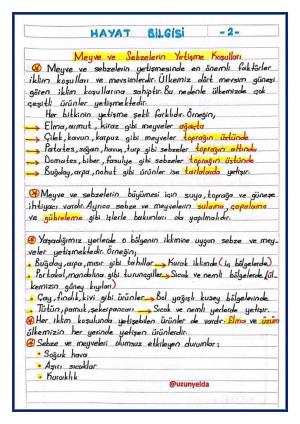 HAYAT BİLGİSİ -2-
Meyve ve Sebzelerin Yetişme Koşulları
Meyve ve sebzelerin yetişmesinde en önemli faktörler
iklim koşulları ve mevsimlerdir. Ülkemiz dört mevsim güneşi
gören iklim koşullarına sahiptir. Bu nedenle ülkemizde çok
çeşitli ürünler yetişmektedir.
Her bitkinin yetişme şekli farklıdır. Örneğin,
→ Elma, armut, kiraz gibi meyveler ağaçta
→ Çilek, kavun, karpuz gibi meyveler toprağın üstünde
→ Patates, soğan, havuç, turp gibi sebzeler toprağın altında
→ Domates, biber, fasulye gibi sebzeler toprağın üstünde
→ Buğday, arpa, nohut gibi ürünler ise tarlalarda yetişir.
Meyve ve sebzelerin büyümesi için suya, toprağa ve güneşe
ihtiyacı vardır. Ayrıca sebze ve meyvelerin sulama, çapalama
ve gübreleme gibi işlerle bakımları da yapılmalıdır.
Yaşadığımız yerlerde o bölgenin iklimine uygun sebze ve mey-
veler yetişmektedir. Örneğin;
• Buğday, arpa, mısır gibi tahıllar → Kurak iklimde (iç bölgelerde)
• Portakal, mandalina gibi turunçgiller → Sıcak ve nemli bölgelerde (ül-
kemizin güney kıyıları)
• Çay, fındık, kivi gibi ürünler → Bol yağışlı kuzey bölgelerinde
• Tütün, pamuk, şekerpancarı → Sıcak ve nemli yerlerde yetişir.
Her iklim koşulunda yetişebilen ürünler de vardır. Elma ve üzüm
ülkemizin her yerinde yetişen ürünlerdir.
Sebze ve meyveleri olumsuz etkileyen durumlar;
• Soğuk hava
• Aşırı sıcaklar
• Kuraklık
@uzunyelda